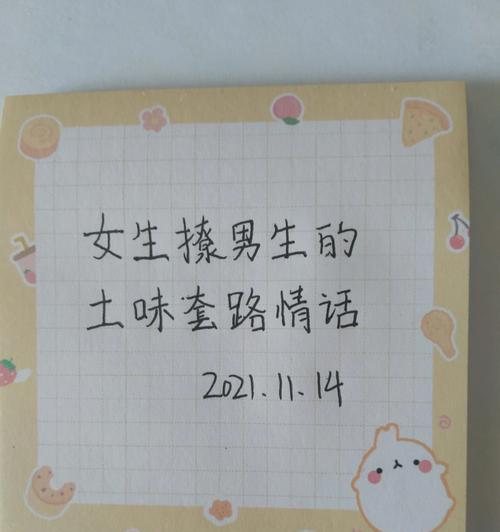 女生撩男生的
土味套路情话
2021.11.14